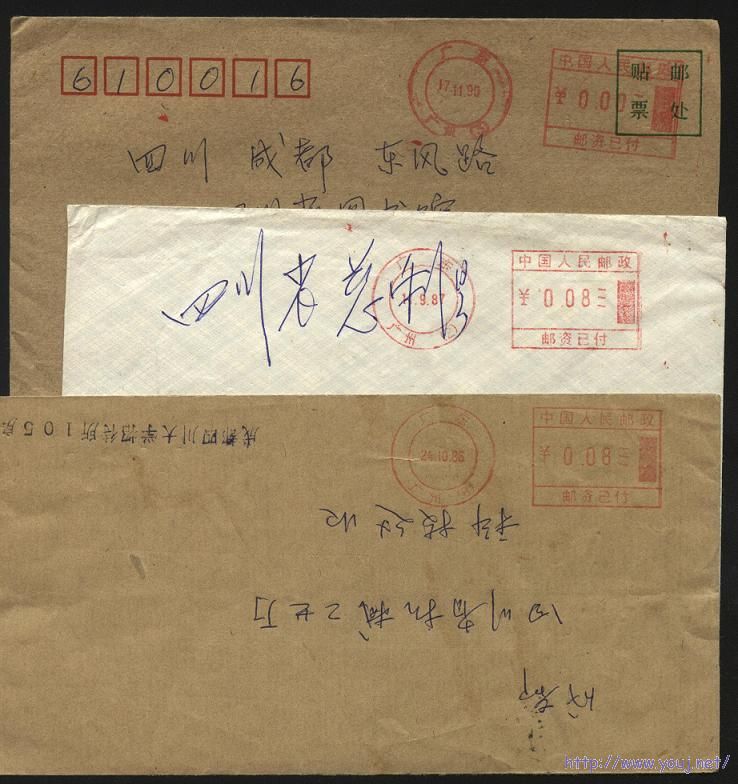 610016
广东
17.11.90
中国人民邮政
¥ 0.00
邮资已付
贴邮
票处
四川 成都 东风路
四川省
广东
9.87
广州
中国人民邮政
¥ 0.08
邮资已付
成都四川大学招待所105房
广东
24.10.86
广州
中国人民邮政
¥ 0.08
邮资已付
成都
四川省机械工业厅
科技处收
http://www.youj.net/